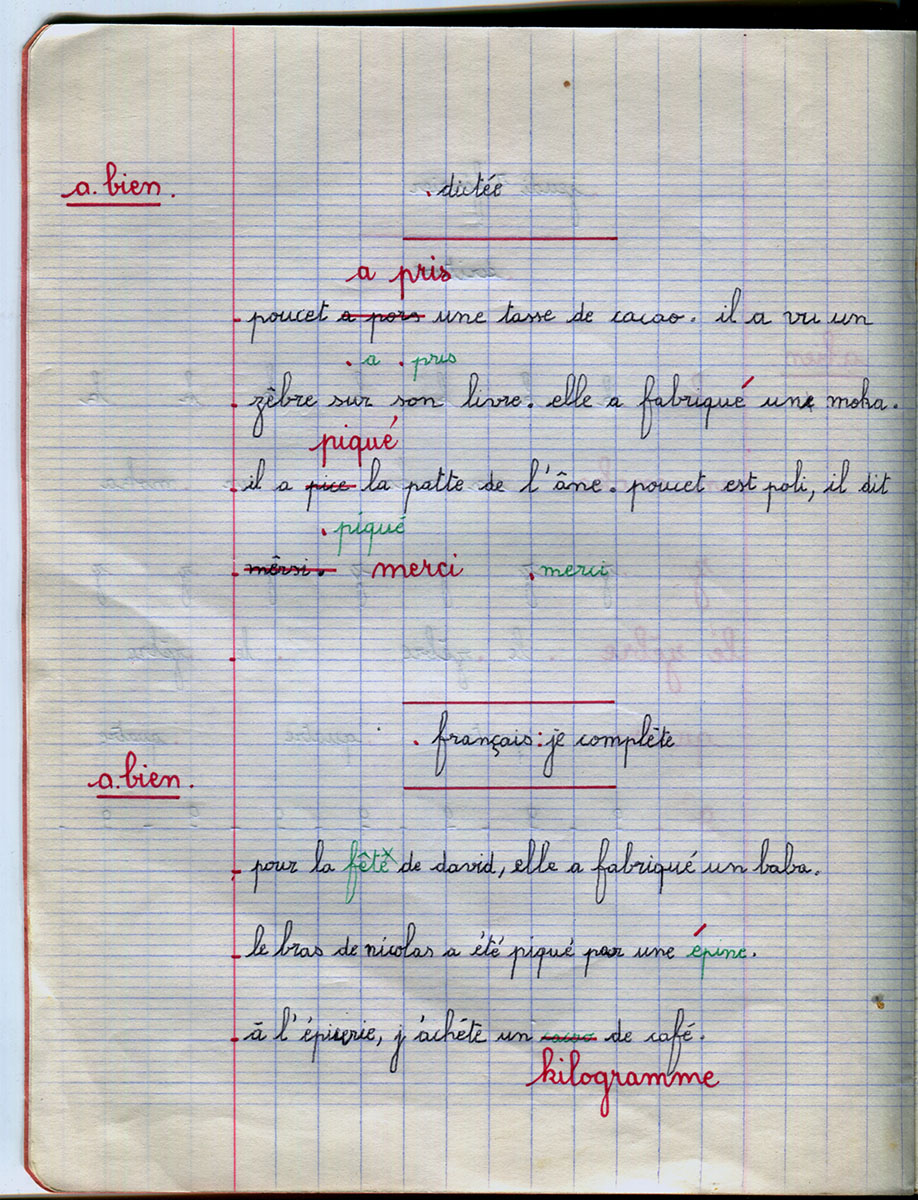 a. bien.
. dictée
a pris
poucet a pors une tasse de cacao. il a vu un
. a . pris
zêbre sur son livre. elle a fabriqué une moka.
piqué
il a pice la patte de l'âne. poucet est poli, il dit
. piqué
mêrsi. merci . merci
. français: je complête
a. bien.
pour la fête de david, elle a fabriqué un baba.
le bras de nicolas a été piqué par une épine.
à l'épicerie, j'achéte un cacao de café.
kilogramme